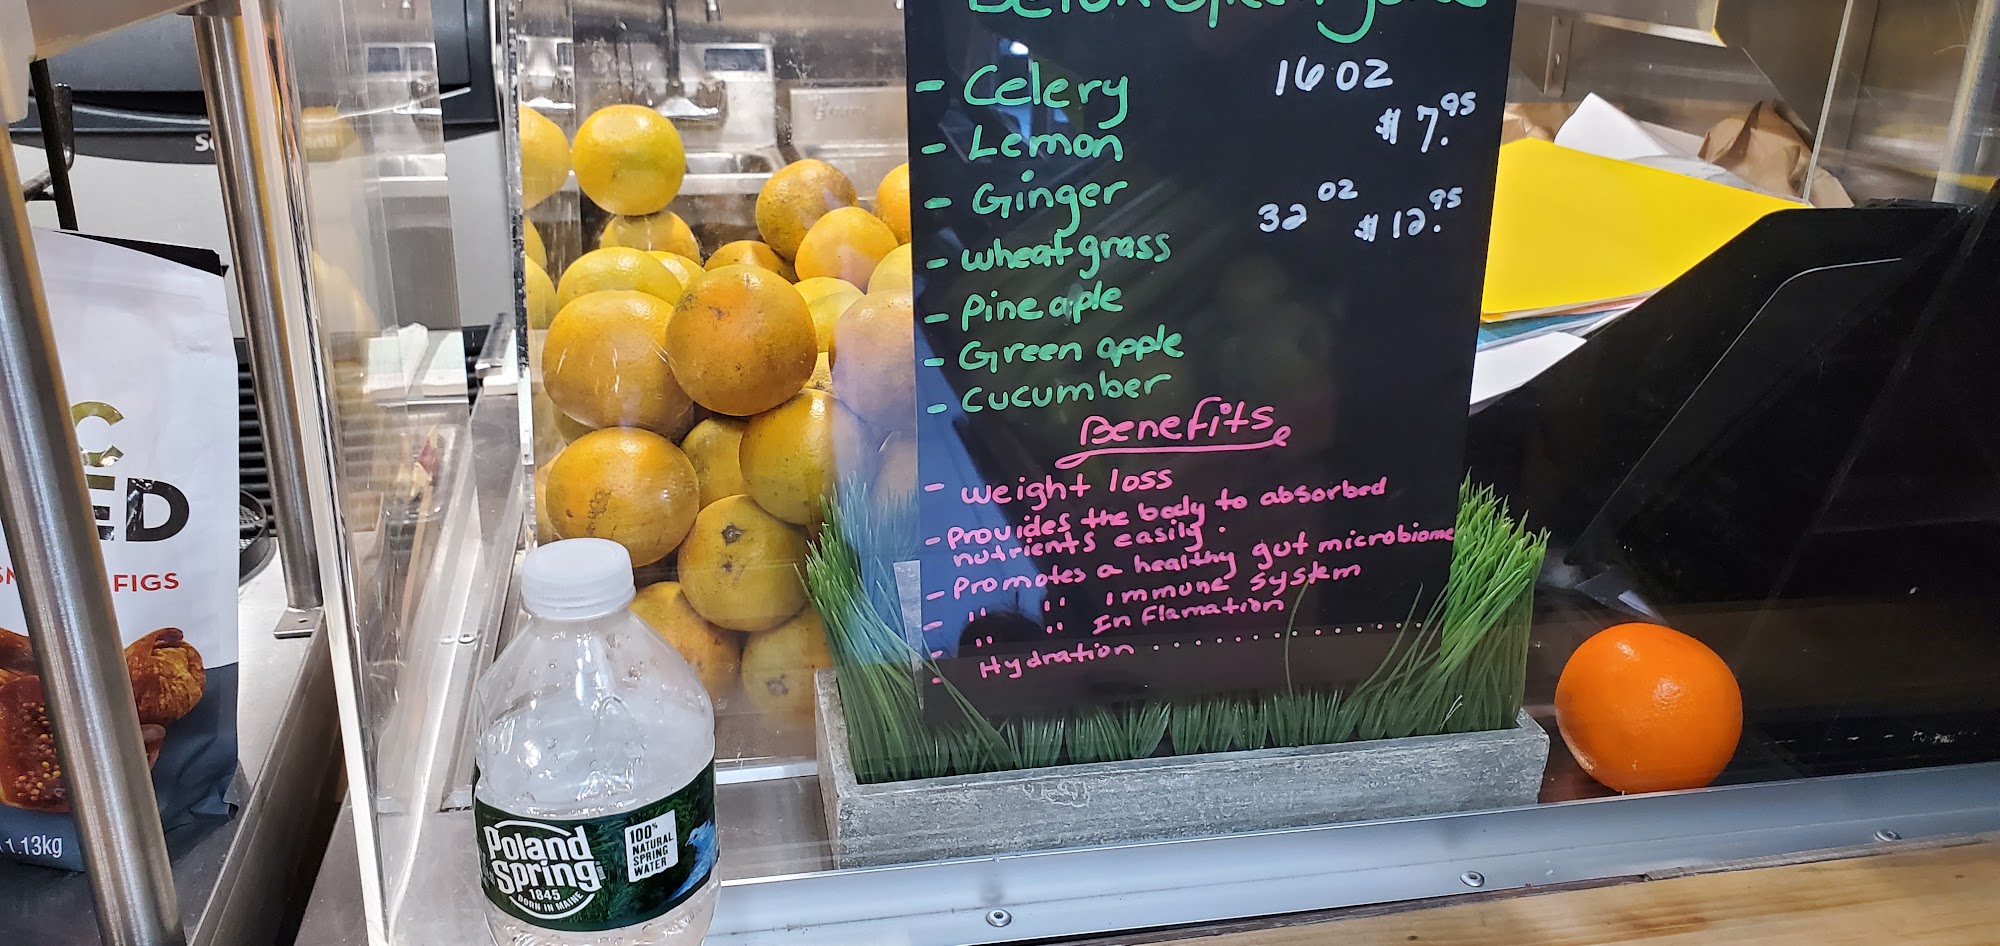 Detox Green Juice
- Celery
16 oz
$7.95
- Lemon
- Ginger
32 oz $12.95
- wheatgrass
- Pineaple
- Green apple
- Cucumber
Benefits
- weight loss
- Provides the body to absorbed
nutrients easily.
- Promotes a healthy gut microbiome
- " " immune system
- " " Inflamation
- Hydration . . . . . . . . . . . .
C
ED
FIGS
1.13kg
Poland
Spring
1845
BORN IN MAINE
100%
NATURAL
SPRING
WATER